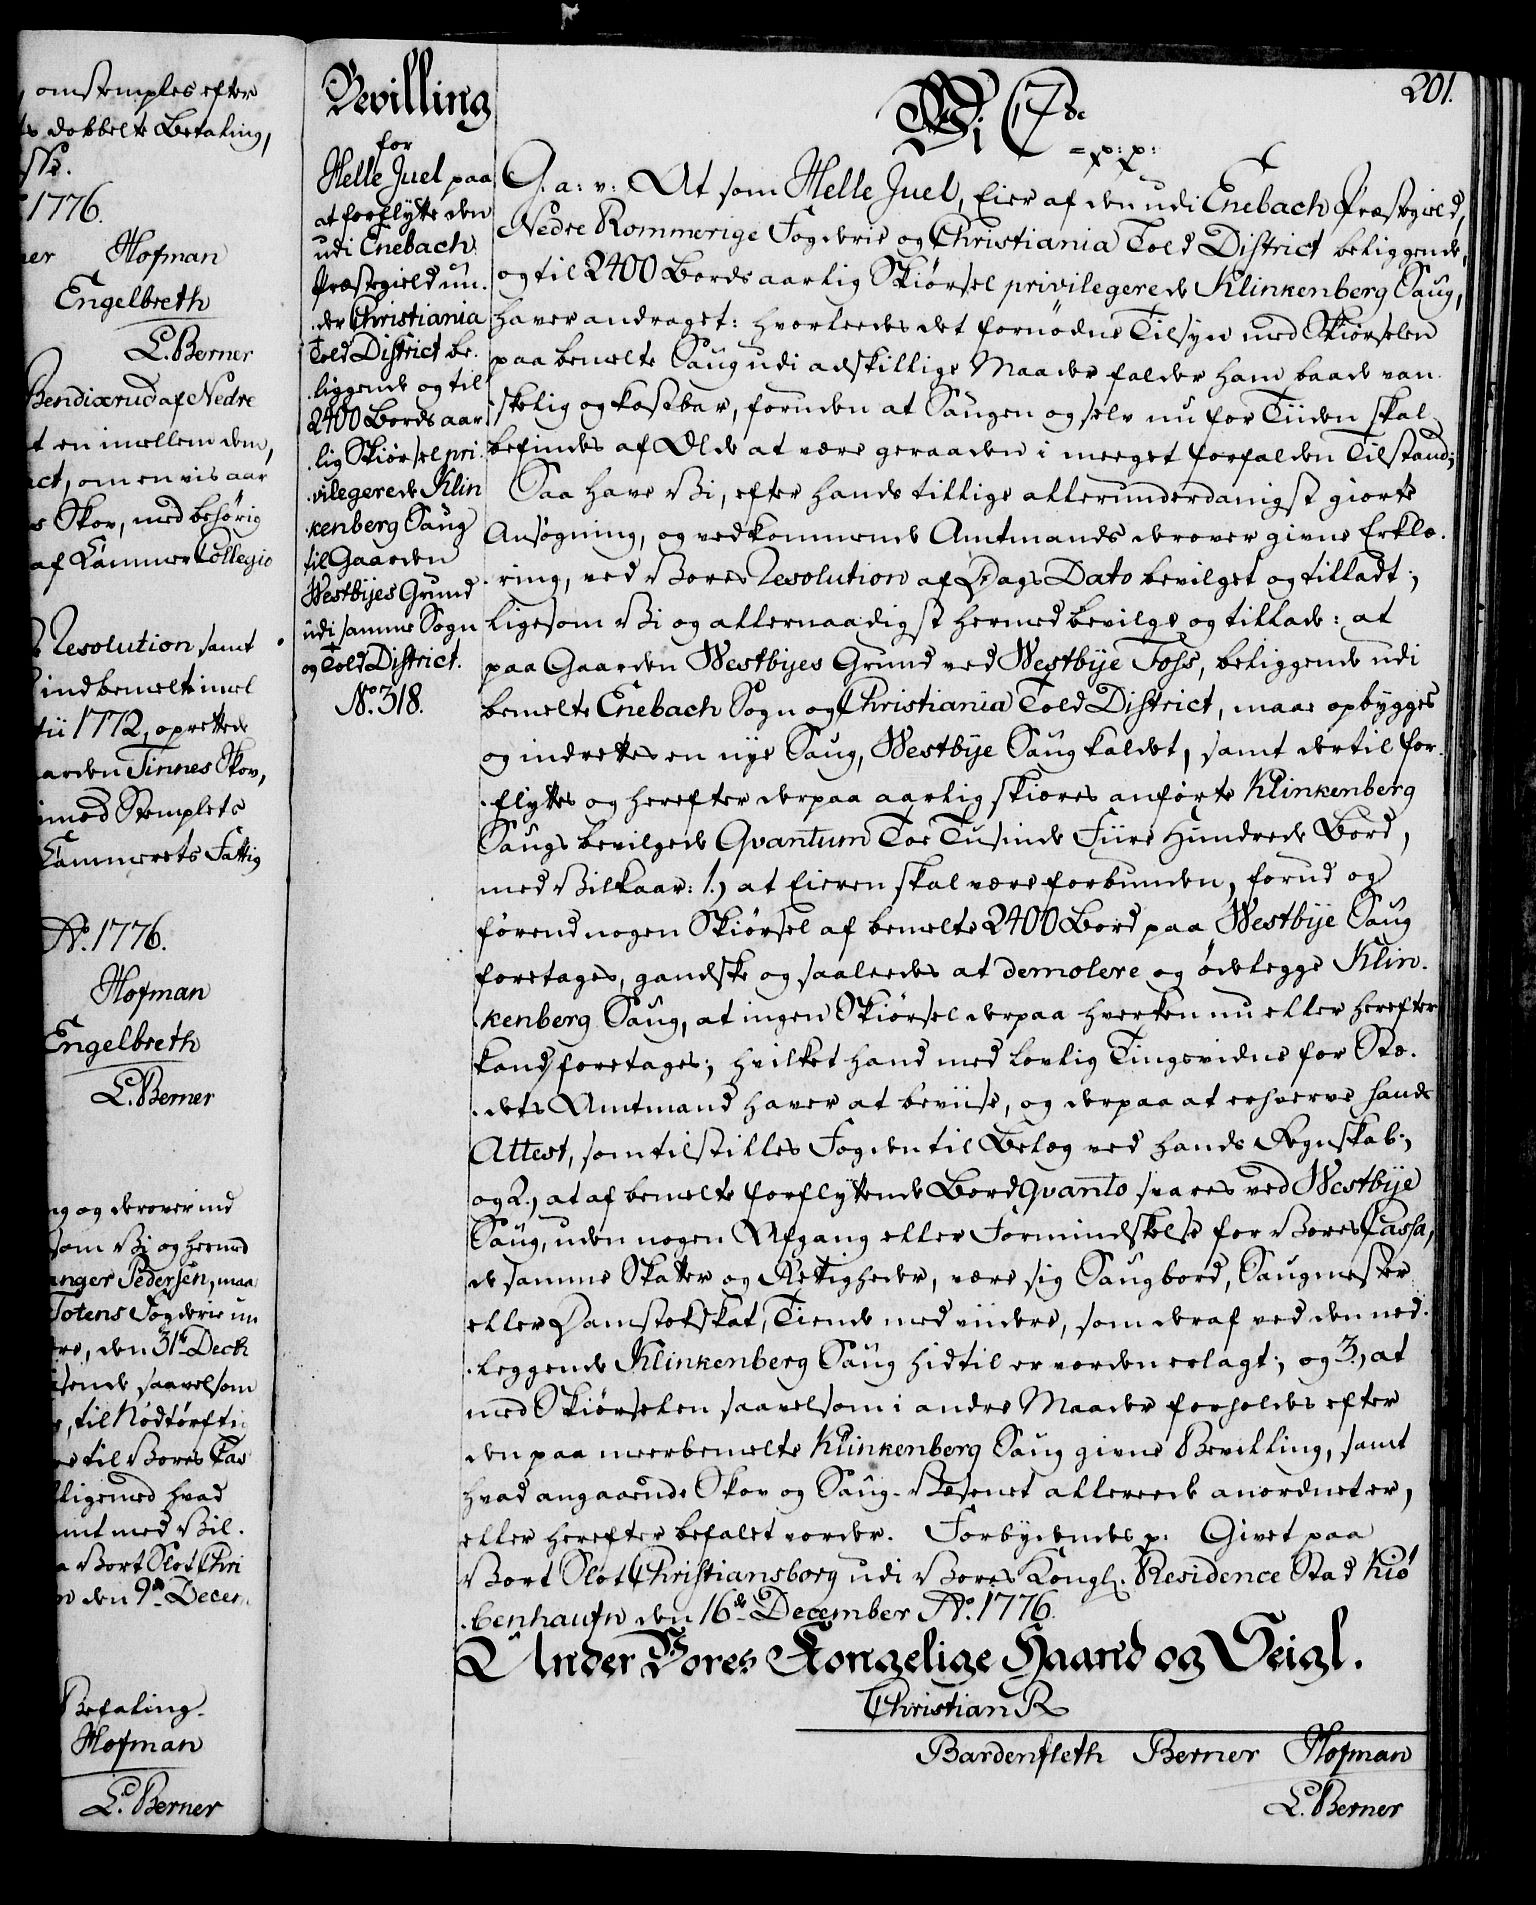 omstemples efter
dobbelte Betaling,
1776.
Hofman
Engelbreth
L. Berner
Bendixrud af Nedre
t en imellem dem,
act, om en vis aar
s Skov, med behørig
af Cammer Collegio
Resolution samt
indbemelte imel
tii 1772, oprettede
aarden Tinnes Skov,
imod Stemplets
Cammerets Fattig
Ao. 1776.
Hofman
Engelbreth
L. Berner
ng og derover ind
som Vi og hermed
anger Pedersen, maa
Totens Fogderie un
re, den 31te Decbr
isende saavelsom
, til Nødtørfti
re til Vores Cas
ligemed hvad
mt med Vil-
a Vort Slot Chri
n den 9de Decem
Befaling.
Hofman
L. Berner
Bevilling
for
Helle Juel paa
at forflytte den
udi Enebach
Præstegield un-
der Christiania
Told District be-
liggende og til
2400 Bords aar-
lig Skiørsel pri-
vilegerede Klin
kenberg Saug
til Gaarden
Westbyes Grund
udi samme Sogn
og Told District.
No. 318.
201.
Vi C 7de
p: p:
G. a: v: At som Helle Juel, Eier af den udi Enebach Præstegield,
Nedre Rommerige Fogderie og Christiania Told District beliggende,
og til 2400 Bords aarlig Skiørsel privilegerede Klinkenberg Saug,
haver andraget: hvorleedes det fornødne Tilsyn med Skiørselen
paa bemelte Saug udi adskillige Maader falder ham baade van-
skelig og kostbar, foruden at Saugen og selv nu for Tiiden skal
befindes af Ælde at være geraaden i meeget forfalden Tilstand;
Saa have Vi, efter hands tillige allerunderdanigst giorte
Ansøgning, og vedkommende Amtmands derover givne Erklæ-
ring, ved Vores Resolution af Dags Dato bevilget og tilladt;
ligesom Vi og allernaadigst hermed bevilge og tillade: at
paa Gaarden Westbyes Grund ved Westbye Foss, beliggende udi
bemelte Enebach Sogn og Christiania Told District, maae opbygges
og indrettes en nye Saug, Westbye Saug kaldet, samt dertil for-
flyttes og herefter derpaa aarlig skiæres anførte Klinkenberg
Saugs bevilgede Qvantum Toe Tusinde Fiire Hundrede Bord,
med Vilkaar: 1.) at Eieren skal være forbunden, forud og
førend nogen Skiørsel af bemelte 2400 Bord paa Westbye Saug
foretages, gandske og saaleedes at demolere og ødelegge Klin-
kenberg Saug, at ingen Skiørsel derpaa hverken nu eller herefter
kand foretages; hvilket hand med lovlig Tingsvidne for Stæ-
dets Amtmand haver at beviise, og derpaa at erhverve hands
Attest, som tilstilles Fogden til Belæg ved hands Regnskab;
og 2.) at af bemelte forflyttende Bord qvanto svares ved Westbye
Saug, uden nogen Afgang eller Formindskelse for Vores Cassa,
de samme Skatter og Rettigheder, være sig Saugbord, Saugmester
eller Damstokskat, Tiende med viidere, som deraf ved den ned-
leggende Klinkenberg Saug hidtil er vorden erlagt; og 3.) at
med Skiørselen saavelsom i andre Maader forholdes efter
den paa meerbemelte Klinkenberg Saug givne Bevilling, samt
hvad angaaende Skov og Saug-Væsenet allereede anordnet er,
eller herefter befalet vorder. Forbydendes p. Givet paa
Vort Slot Christiansborg udi Vores Kongl. Residence Stad Kiø
benhaufn den 16de December Ao. 1776.
Under Vores Kongelige Haand og Seigl.
Christian R
Bardenfleth Berner Hofman
L. Berner